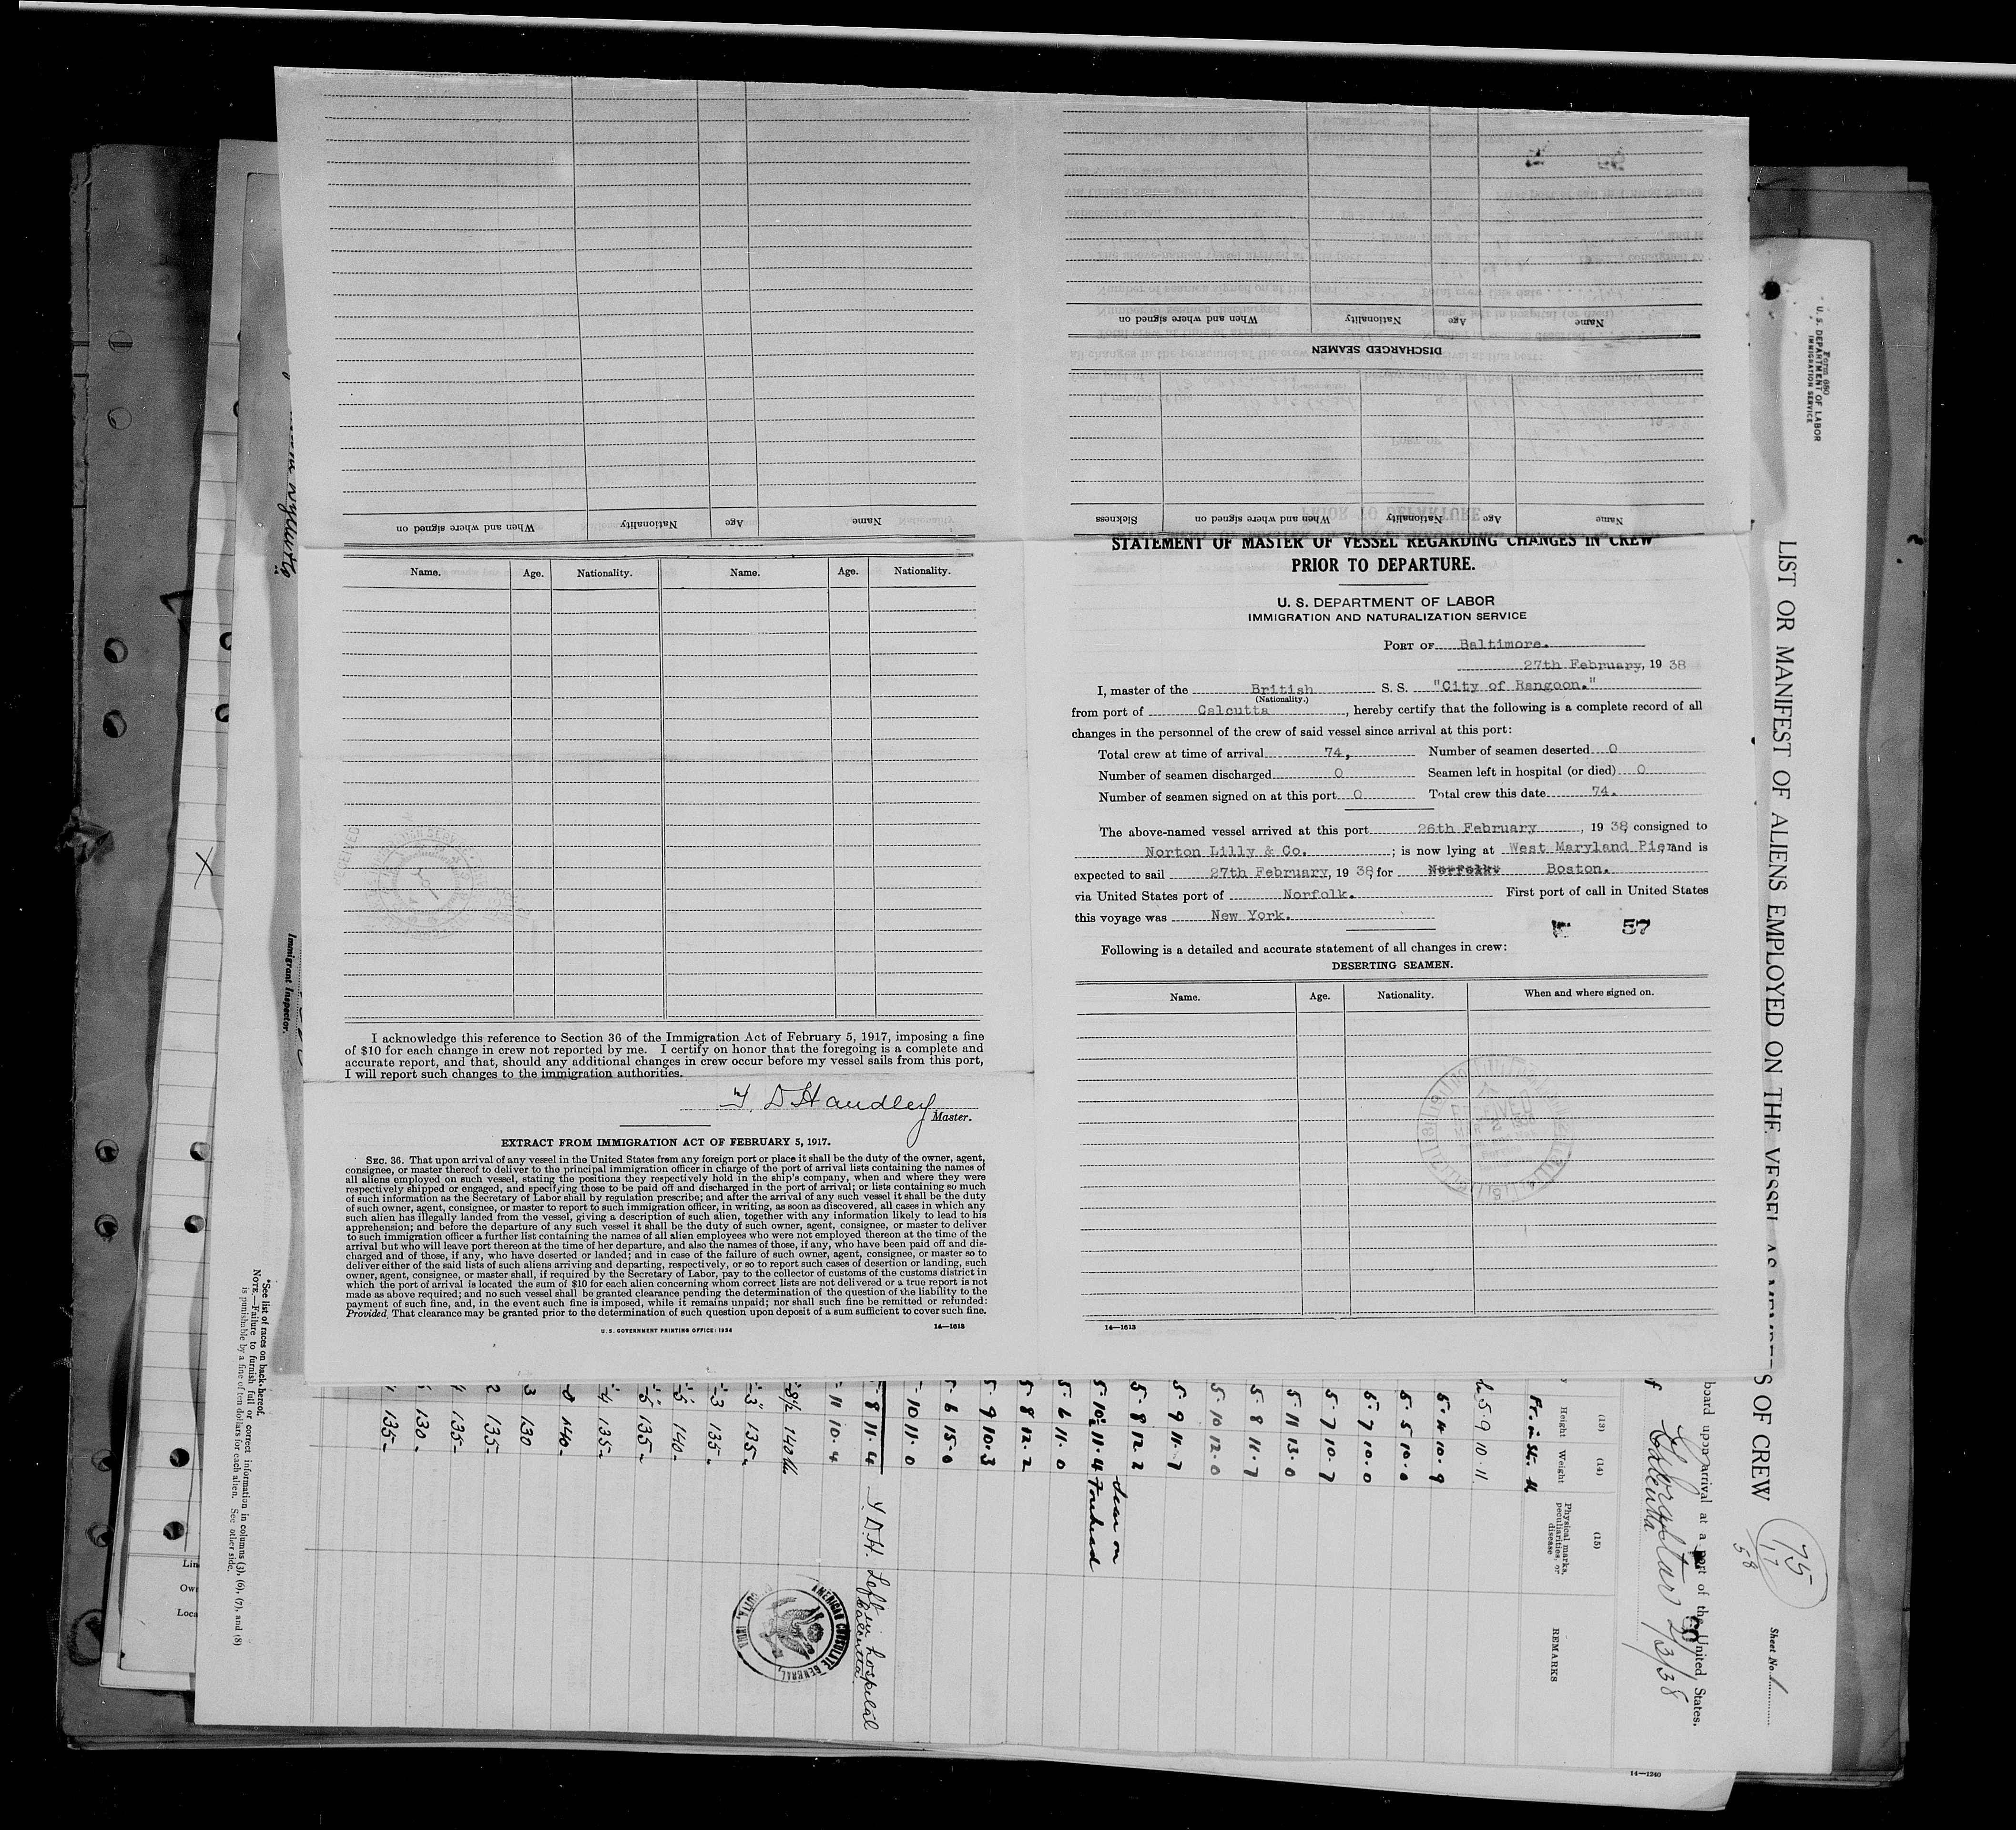 Name
Age
Nationality
When and where signed on
DISCHARGED SEAMEN
Name
Age
Nationality
When and where signed on
Name
Age
Nationality
When and where signed on
Sickness
Name. Age. Nationality. Name. Age. Nationality.
I acknowledge this reference to Section 36 of the Immigration Act of February 5, 1917, imposing a fine
of $10 for each change in crew not reported by me. I certify on honor that the foregoing is a complete and
accurate report, and that, should any additional changes in crew occur before my vessel sails from this port,
I will report such changes to the immigration authorities.
D Handley
Master.
EXTRACT FROM IMMIGRATION ACT OF FEBRUARY 5, 1917.
SEC. 36. That upon arrival of any vessel in the United States from any foreign port or place it shall be the duty of the owner, agent,
consignee, or master thereof to deliver to the principal immigration officer in charge of the port of arrival lists containing the names of
all aliens employed on such vessel, stating the positions they respectively hold in the ship's company, when and where they were
respectively shipped or engaged, and specifying those to be paid off and discharged in the port of arrival; or lists containing so much
of such information as the Secretary of Labor shall by regulation prescribe; and after the arrival of any such vessel it shall be the duty
of such owner, agent, consignee, or master to report to such immigration officer, in writing, as soon as discovered, all cases in which any
such alien has illegally landed from the vessel, giving a description of such alien, together with any information likely to lead to his
apprehension; and before the departure of any such vessel it shall be the duty of such owner, agent, consignee, or master to deliver
to such immigration officer a further list containing the names of all alien employees who were not employed thereon at the time of the
arrival but who will leave port thereon at the time of her departure, and also the names of those, if any, who have been paid off and dis-
charged and of those, if any, who have deserted or landed; and in case of the failure of such owner, agent, consignee, or master so to
deliver either of the said lists of such aliens arriving and departing, respectively, or so to report such cases of desertion or landing, such
owner, agent, consignee, or master shall, if required by the Secretary of Labor, pay to the collector of customs of the customs district in
which the port of arrival is located the sum of $10 for each alien concerning whom correct lists are not delivered or a true report is not
made as above required; and no such vessel shall be granted clearance pending the determination of the question of the liability to the
payment of such fine, and, in the event such fine is imposed, while it remains unpaid; nor shall such fine be remitted or refunded:
Provided, That clearance may be granted prior to the determination of such question upon deposit of a sum sufficient to cover such fine.
U. S. GOVERNMENT PRINTING OFFICE: 1934
14—1613
STATEMENT OF MASTER OF VESSEL REGARDING CHANGES IN CREW
PRIOR TO DEPARTURE.
U. S. DEPARTMENT OF LABOR
IMMIGRATION AND NATURALIZATION SERVICE
PORT OF Baltimore.
27th February, 19 38
I, master of the British S. S. "City of Rangoon."
(Nationality.)
from port of Calcutta, hereby certify that the following is a complete record of all
changes in the personnel of the crew of said vessel since arrival at this port:
Total crew at time of arrival 74, Number of seamen deserted 0
Number of seamen discharged 0 Seamen left in hospital (or died) 0
Number of seamen signed on at this port 0 Total crew this date 74.
The above-named vessel arrived at this port 26th February, 19 38, consigned to
Norton Lilly & Co.; is now lying at West Maryland Pier, and is
expected to sail 27th February, 19 38, for Norfolk. Boston.
via United States port of Norfolk. First port of call in United States
this voyage was New York.
57
Following is a detailed and accurate statement of all changes in crew:
DESERTING SEAMEN.
Name. Age. Nationality. When and where signed on.
RECEIVED
14—1613
Form 680
U. S. DEPARTMENT OF LABOR
IMMIGRATION SERVICE
LIST OR MANIFEST OF ALIENS EMPLOYED ON THE VESSEL AS MEMBERS OF CREW
75
17
58
Sheet No. 1
board upon arrival at a port of the United States.
60
Gibraltar 2/3/38
Calcutta
(13) (14) (15)
Height Weight Physical marks, peculiarities, or disease REMARKS
5-9 10 11
5-4 10-9
5-5 10-0
5-7 10-0
5-7 10-7
5-11 13-0
5-8 11-7
5-10 12-0
5-9 11-7
5-8 12-2 Scar on
5-10½ 11-4 Forehead
5-6 11-0
5-8 12-2
5-9 10-3
5-6 15-0
10 11-0
8 11-4 D.H. Left in hospital Calcutta
11 10-4
8½ 140
3 135
3 135
5 140
5 135
4 135
8 140
3 130
2 135
135
130
135
AMERICAN CONSULATE GENERAL,
INDIA
14—1240
Immigrant Inspector.
*See list of races on back hereof.
NOTE.—Failure to furnish full or correct information in columns (3), (6), (7), and (8)
is punishable by a fine of ten dollars for each alien. See other side.
Lin
Own
Loca